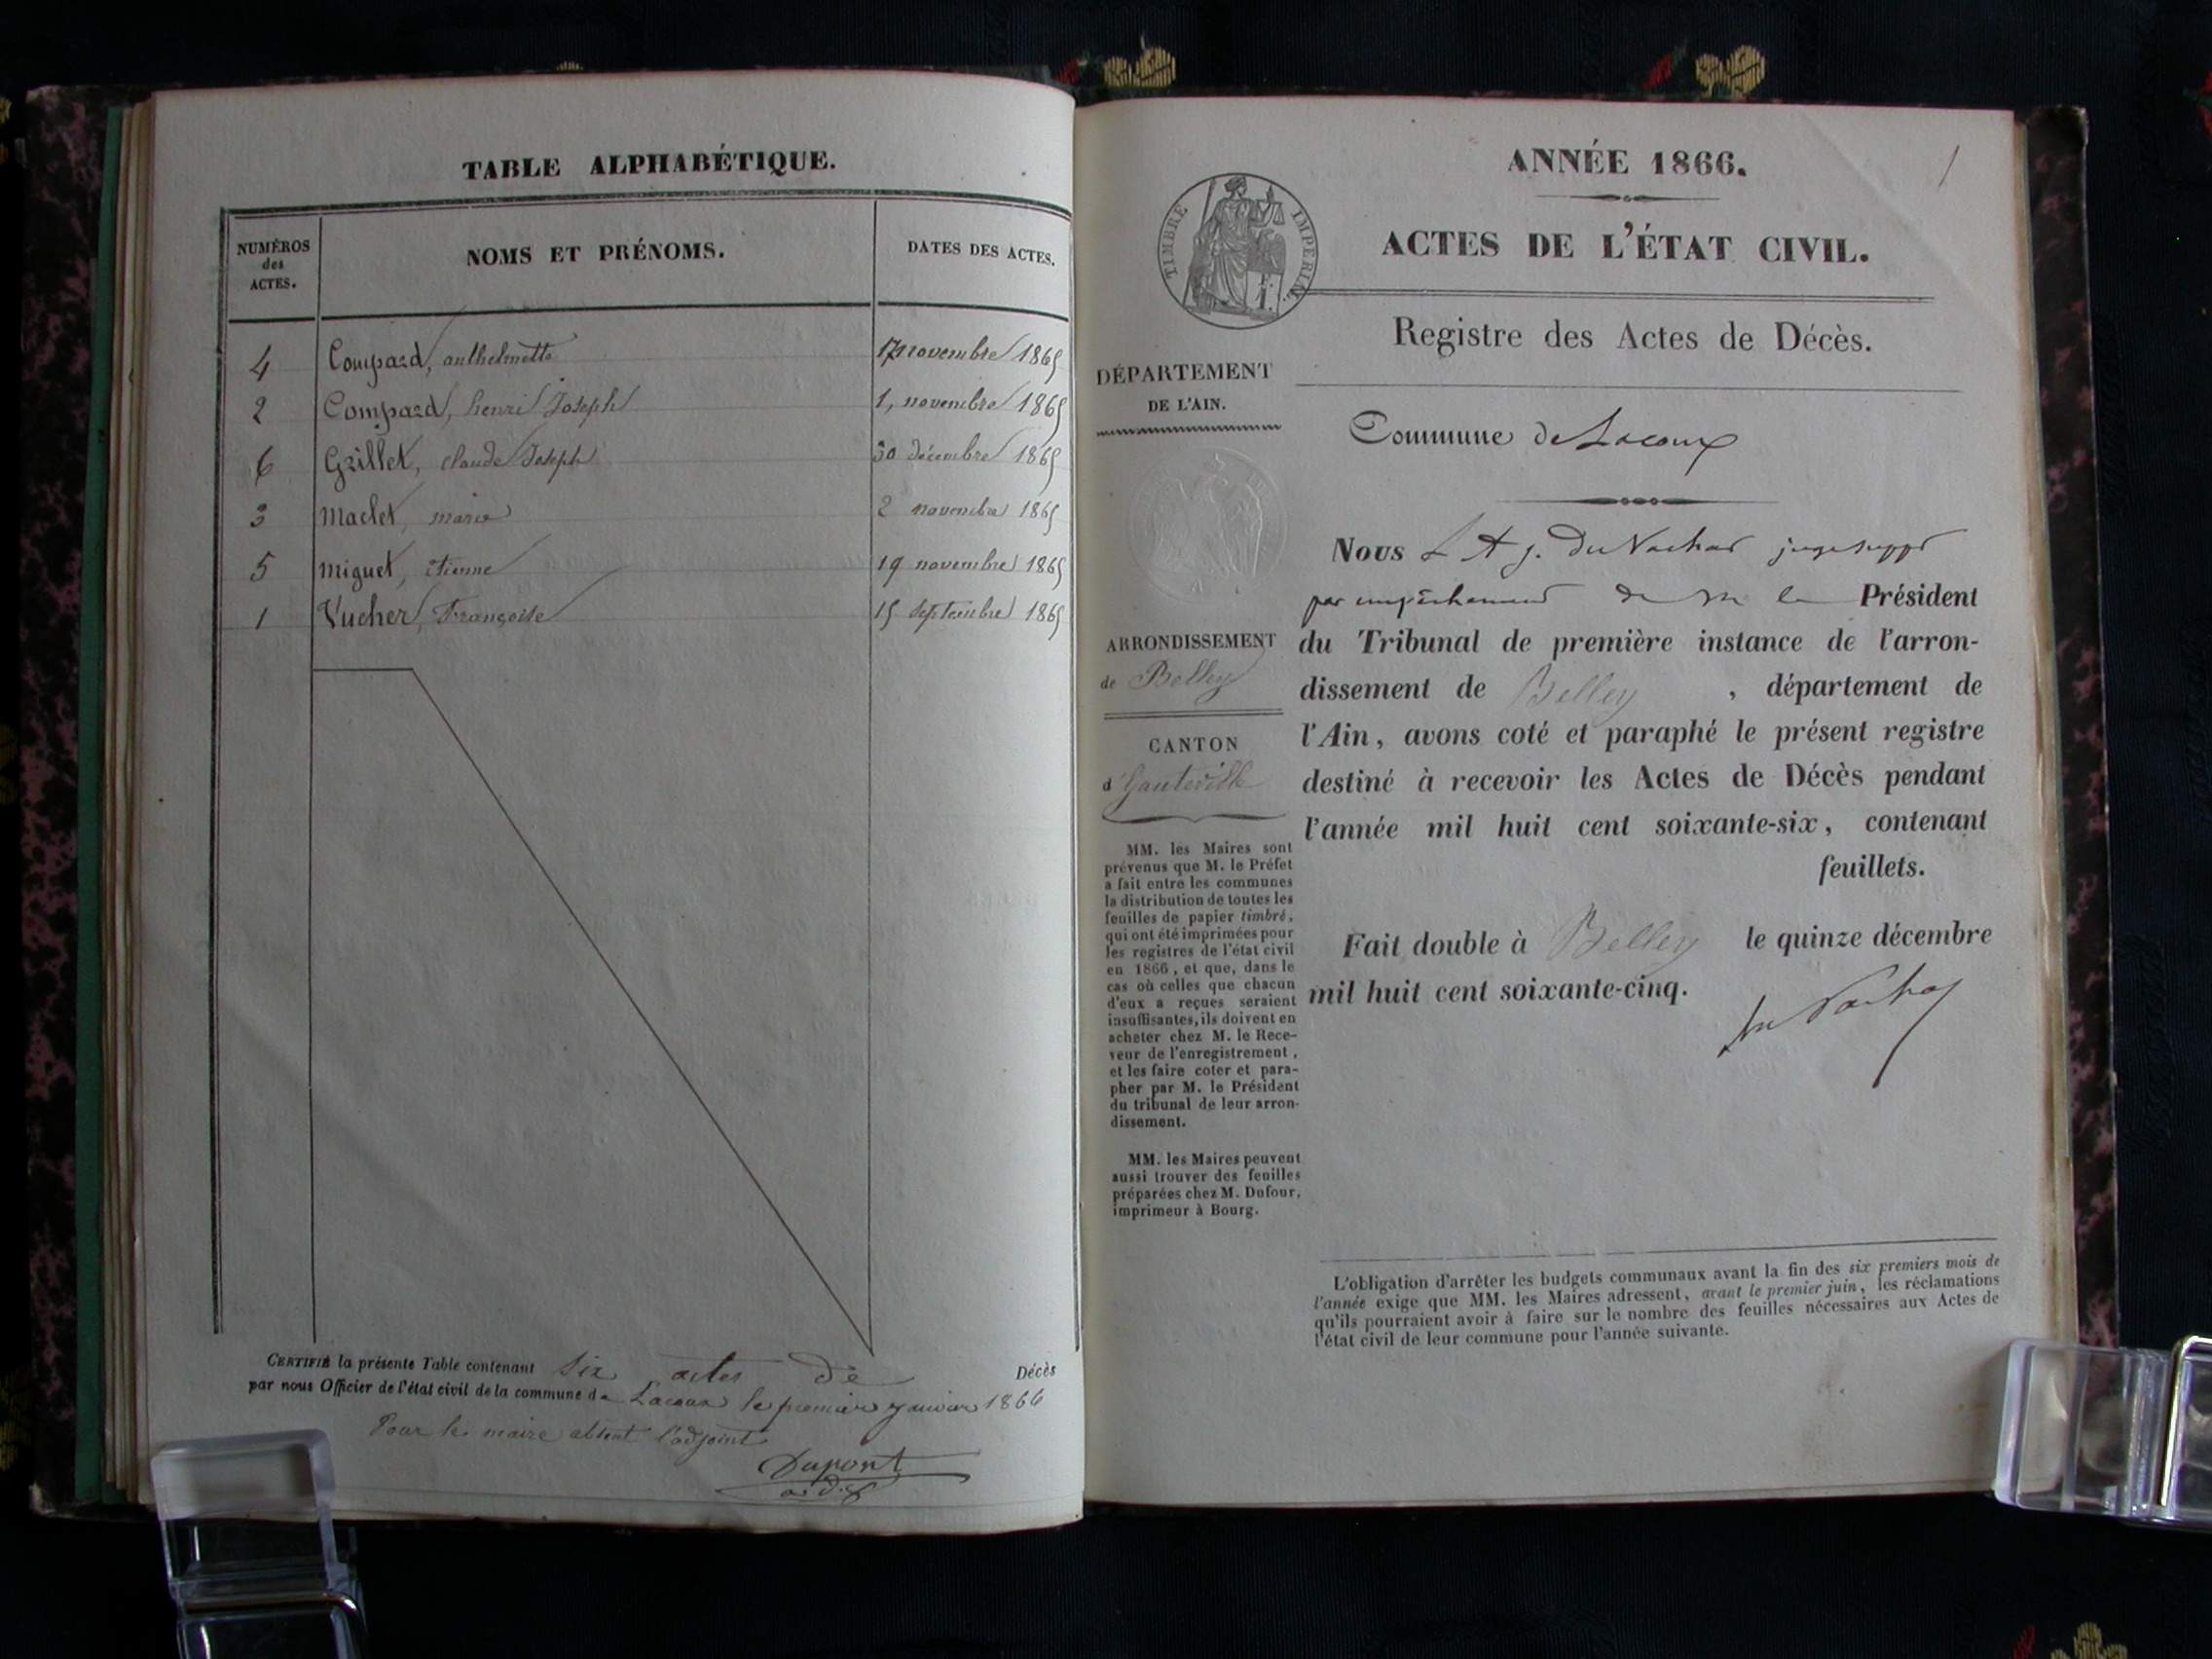 TABLE ALPHABÉTIQUE.
NUMÉROS des ACTES. NOMS ET PRÉNOMS. DATES DES ACTES.
4 Compard, anthelmette 17 novembre 1865
2 Compard, henri Joseph 1, novembre 1865
6 Grillet, claude Joseph 30 décembre 1865
3 Maclet, marie 2 novembre 1865
5 Miguet, étienne 19 novembre 1865
1 Vucher, Françoise 15 septembre 1865
CERTIFIÉ la présente Table contenant six actes de Décès
par nous Officier de l'état civil de la commune de Lacoux le premier janvier 1866
Pour le maire absent l'adjoint
Dupont
adj
1
ANNÉE 1866.
TIMBRE IMPÉRIAL
ACTES DE L'ÉTAT CIVIL.
Registre des Actes de Décès.
DÉPARTEMENT
DE L'AIN.
Commune de Lacoux
ARRONDISSEMENT
de Belley
CANTON
d'Hauteville
MM. les Maires sont
prévenus que M. le Préfet
a fait entre les communes
la distribution de toutes les
feuilles de papier timbré,
qui ont été imprimées pour
les registres de l'état civil
en 1866, et que, dans le
cas où celles que chacun
d'eux a reçues seraient
insuffisantes, ils doivent en
acheter chez M. le Rece-
veur de l'enregistrement,
et les faire coter et para-
pher par M. le Président
du tribunal de leur arron-
dissement.
MM. les Maires peuvent
aussi trouver des feuilles
préparées chez M. Dufour,
imprimeur à Bourg.
Nous juge supp
par empêchement de M le Président
du Tribunal de première instance de l'arron-
dissement de Belley, département de
l'Ain, avons coté et paraphé le présent registre
destiné à recevoir les Actes de Décès pendant
l'année mil huit cent soixante-six, contenant
feuillets.
Fait double à Belley le quinze décembre
mil huit cent soixante-cinq.
L'obligation d'arrêter les budgets communaux avant la fin des six premiers mois de
l'année exige que MM. les Maires adressent, avant le premier juin, les réclamations
qu'ils pourraient avoir à faire sur le nombre des feuilles nécessaires aux Actes de
l'état civil de leur commune pour l'année suivante.